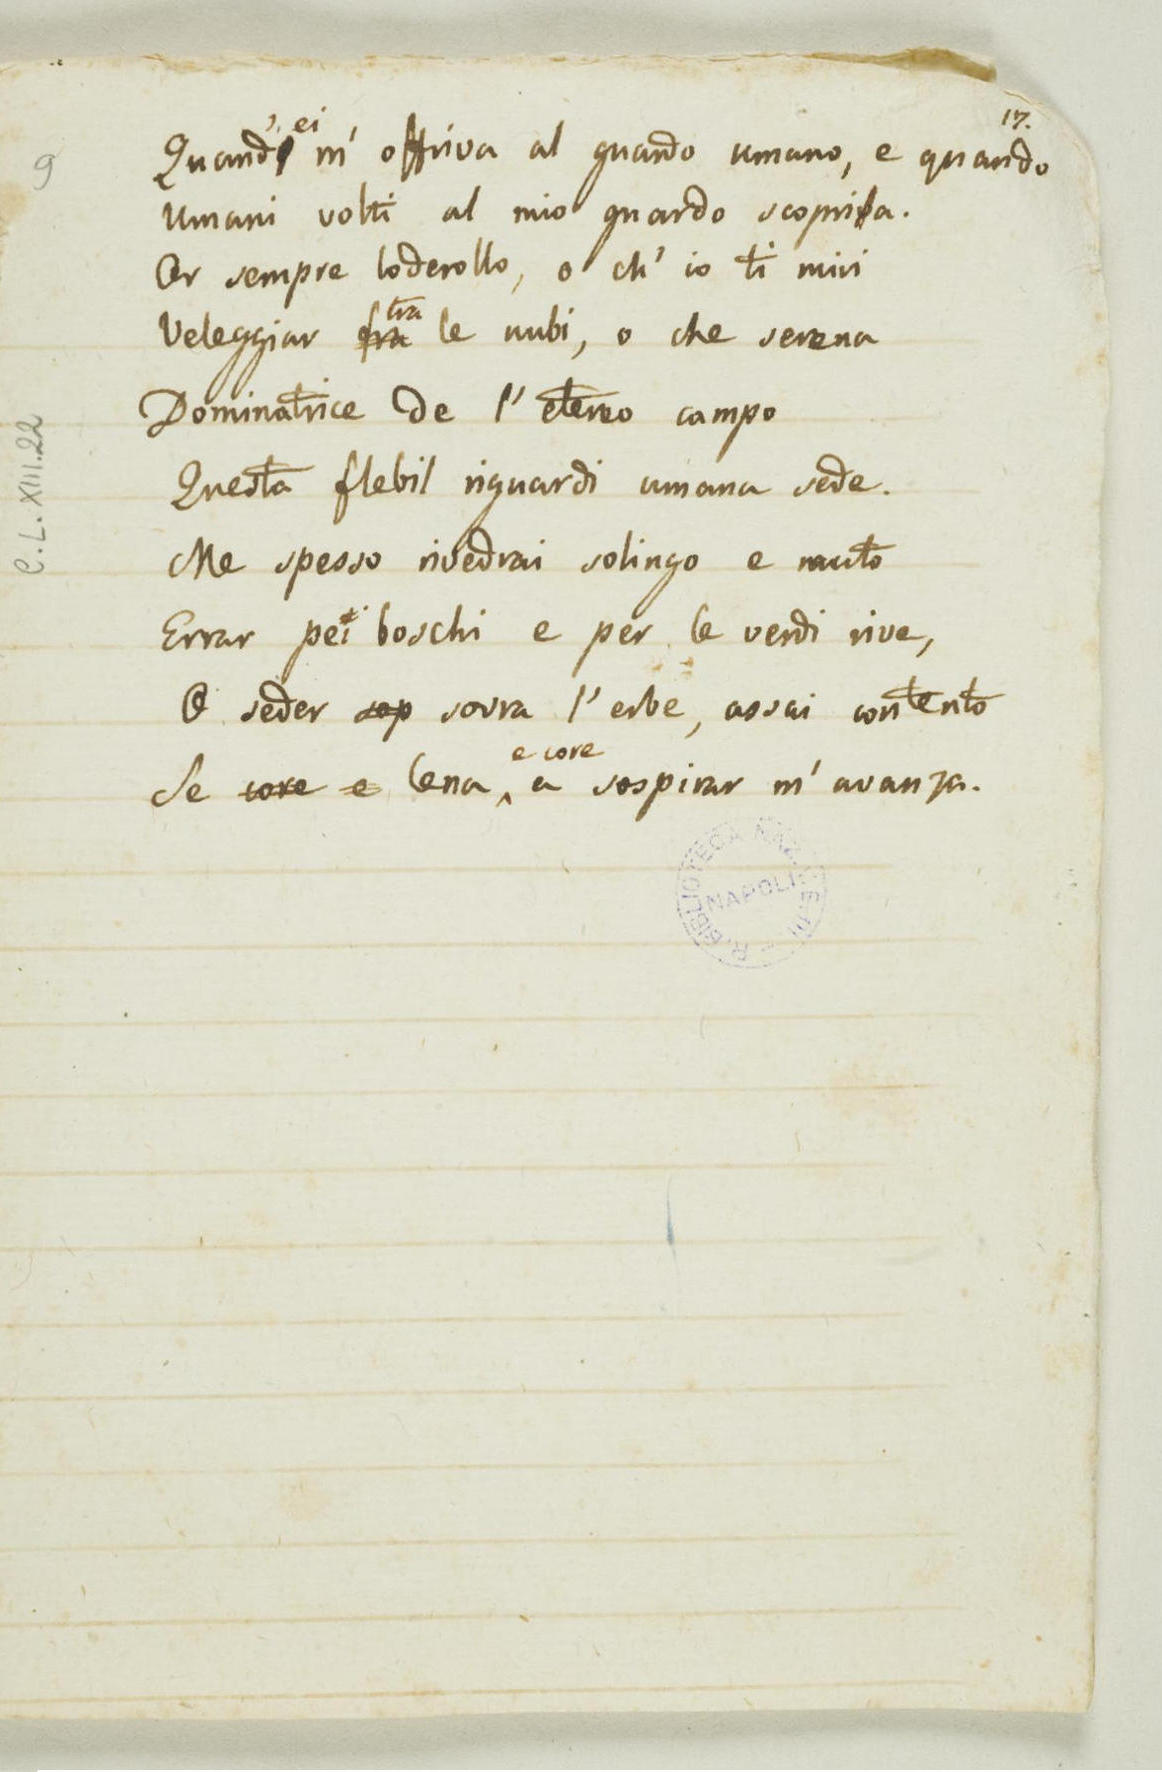 17.
9
Quand' ei m' offriva al guardo umano, e quando
Umani volti al mio guardo scopria.
Or sempre loderollo, o ch' io ti miri
Veleggiar fra tra le nubi, o che serena
Dominatrice de l' etereo campo
Questa flebil riguardi umana sede.
Me spesso rivedrai solingo e muto
Errar pei boschi e per le verdi rive,
O seder sop sovra l' erbe, assai contento
e core
Se core e lena a sospirar m' avanza.
C.L.XIII.22
R. BIBLIOTECA NAZ. V. E. III
NAPOLI